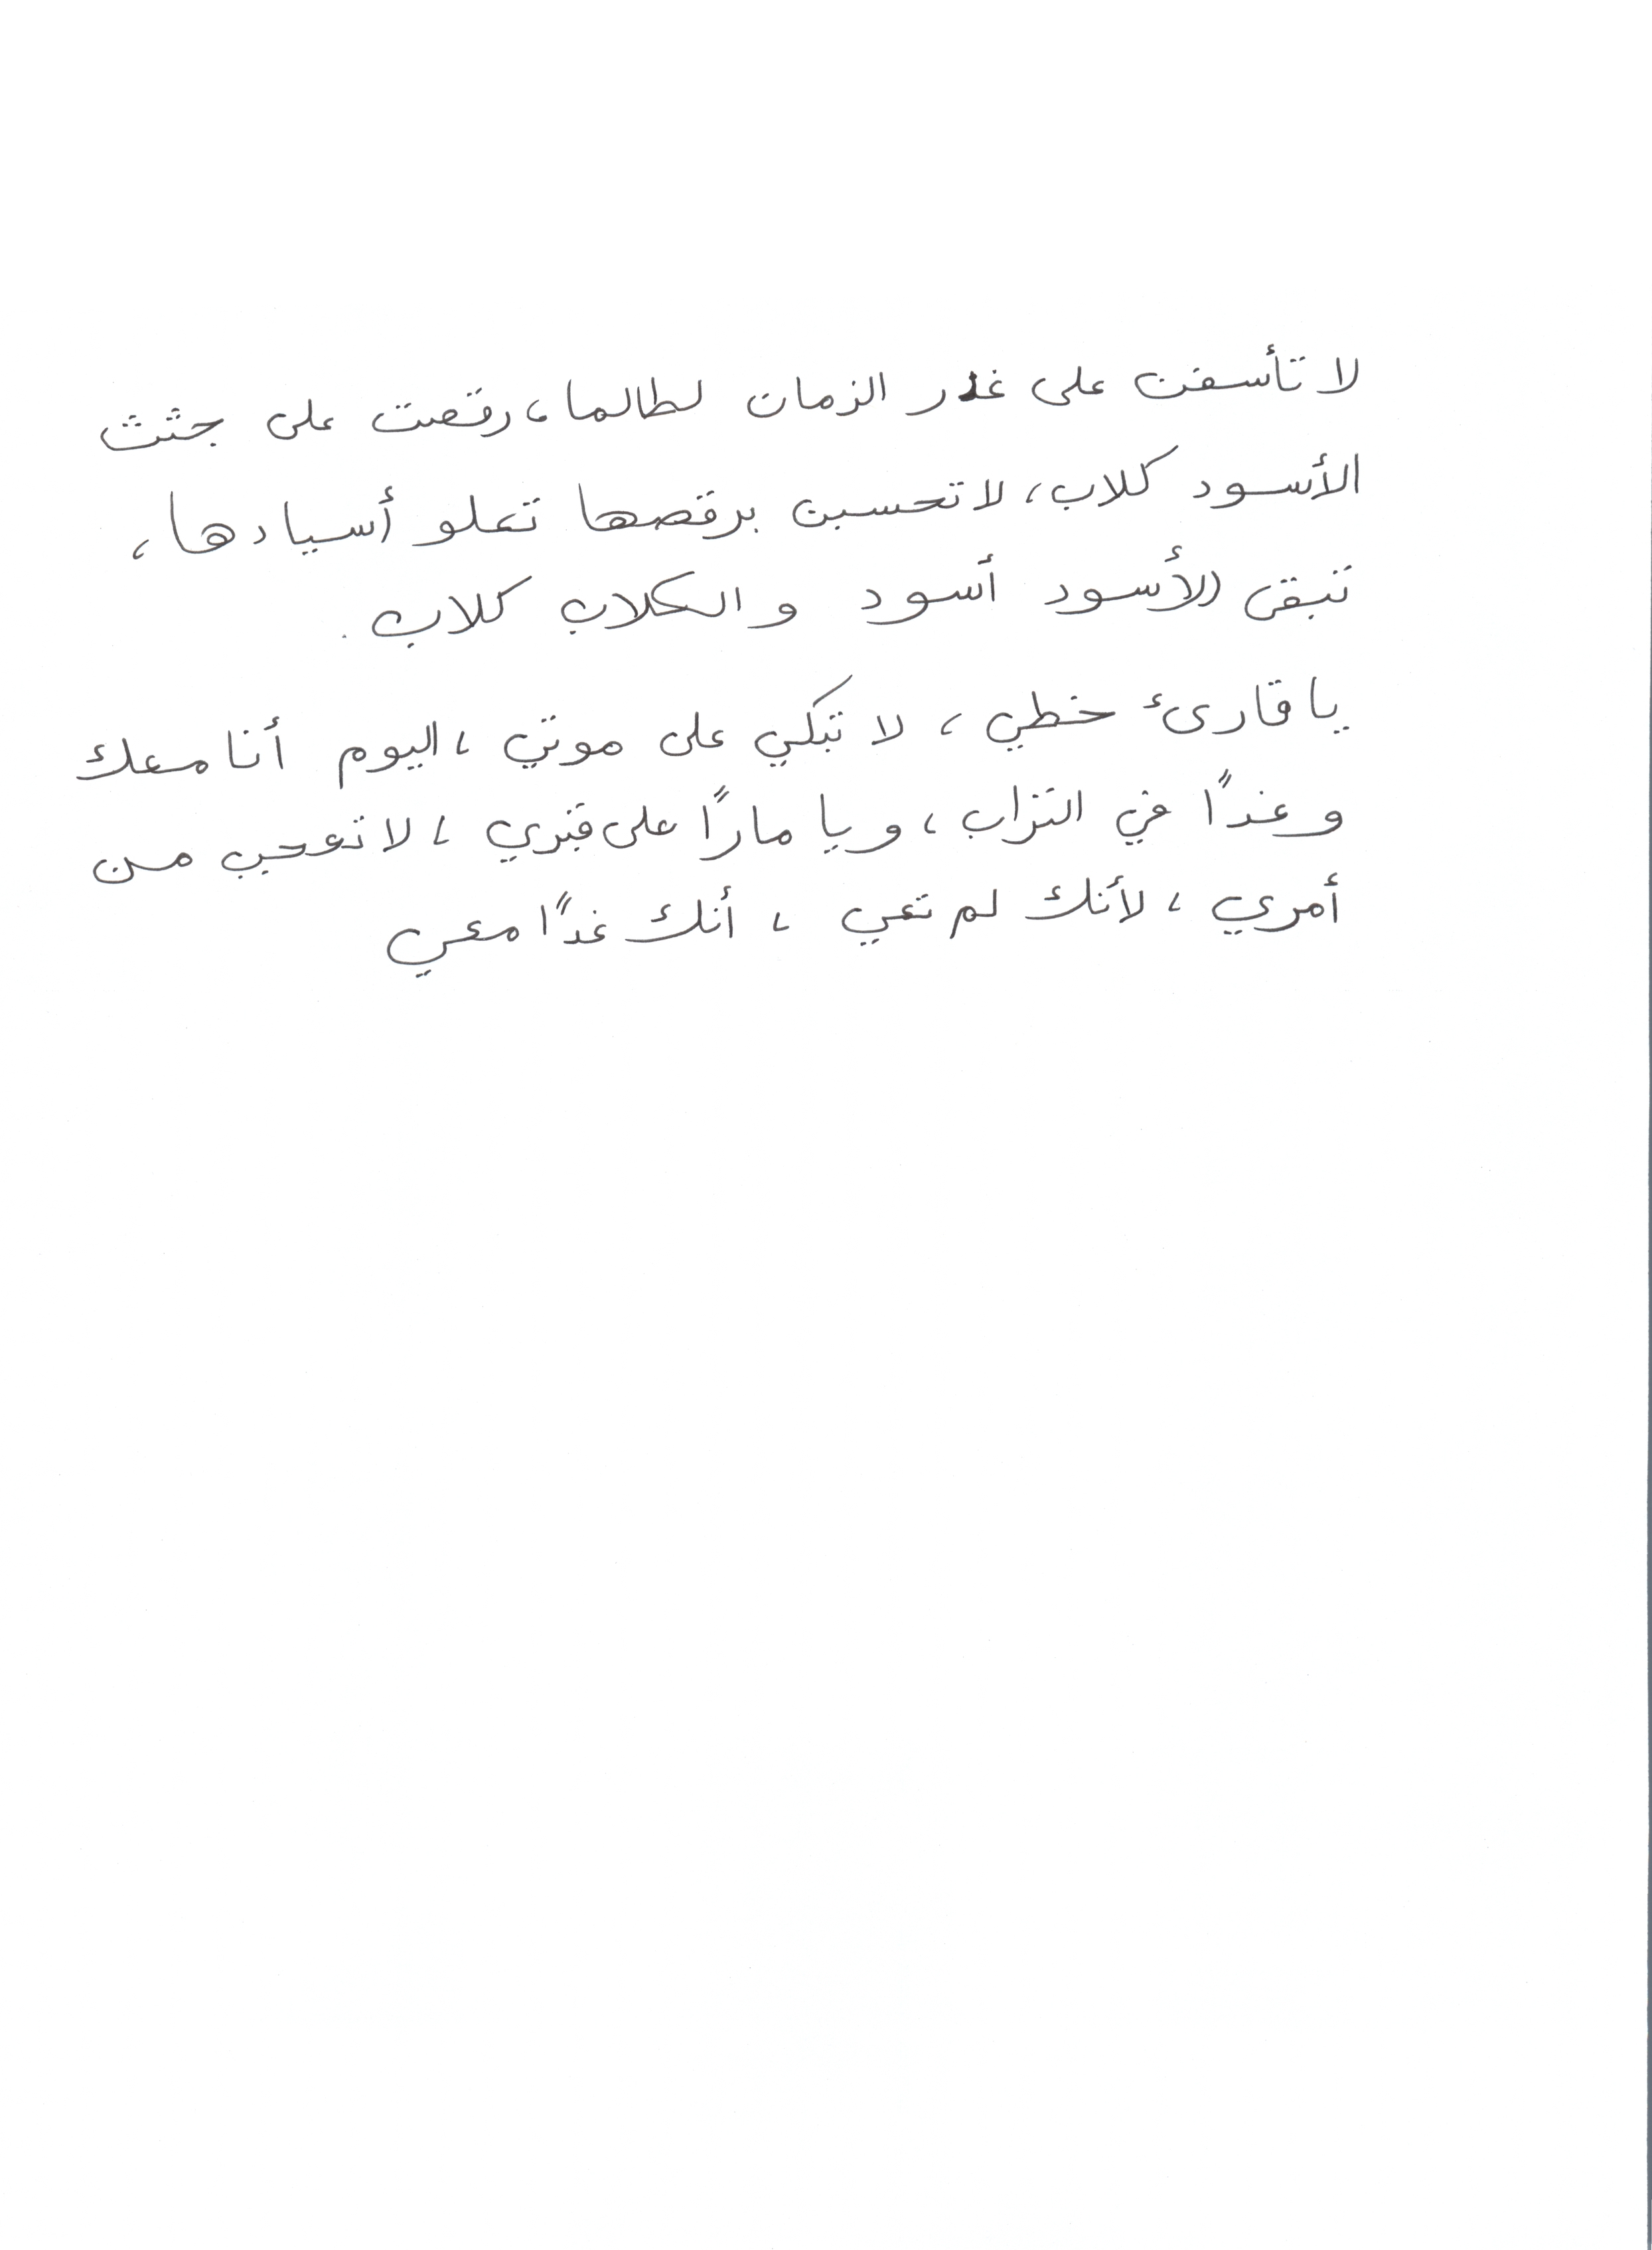 لا تأسفن على غدر الزمان لطالما، رقصت على جثث
الأسود كلاب، لا تحسبن برقصها تعلو أسيادها،
تبقى الأسود أسود والكلاب كلاب.
يا قارئ خطي، لا تبكي على موتي، اليوم أنا معك
وغدًا في التراب، ويا مارًا على قبري، لا تعجب من
أمري، لأنك لم تعي، أنك غدًا معي